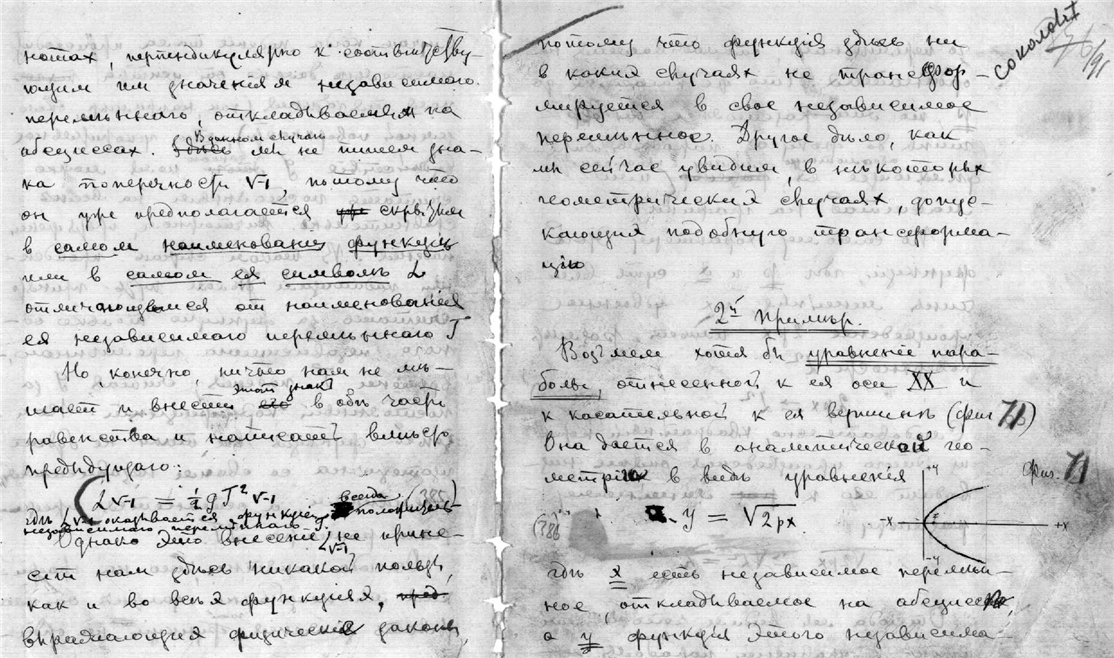 нотах, перпендикулярно к соответству-
ющим им значениям независимаго
переменнаго, откладываемым на
абсциссах. В данном случаѣ мы не пишем зна-
ка поперечности √-1, потому что
он уже предполагается скрытым
в самом наименовании функции
или в самом ея символѣ L
отличающимся от наименования
ея независимаго переменнаго T
Но, конечно, ничего нам не мѣ-
шает и внести этот знак в обѣ части
равенства и написать вмѣсто
предыдущаго:
L√-1 = ½ gT² √-1 (385)
гдѣ L√-1 оказывается функцией всегда
независимаго переменнаго T.
Однако это внесение √-1 не прине-
сет нам здѣсь никакой пользы,
как и во всѣх функциях,
выражающих физические законы,
потому что функция здѣсь ни
в каких случаях не трансфор-
мируется в свое независимое
переменное. Другое дѣло, как
мы сейчас увидим, в нѣкоторых
геометрических случаях, допус-
кающих подобную трансформа-
цію
2й Примѣр.
Возьмем хотя бы уравненіе пара-
болы, отнесенной к ея оси XX и
к касательной к ея вершинѣ (фиг 71)
Она дается в аналитической гео-
метрии в видѣ уравнения
y = √2px
(386)
Фиг. 71
+y
-x
+x
-y
гдѣ x есть независимое перемѣн-
ное, откладываемое на абсциссѣ,
а y функция этого независима-